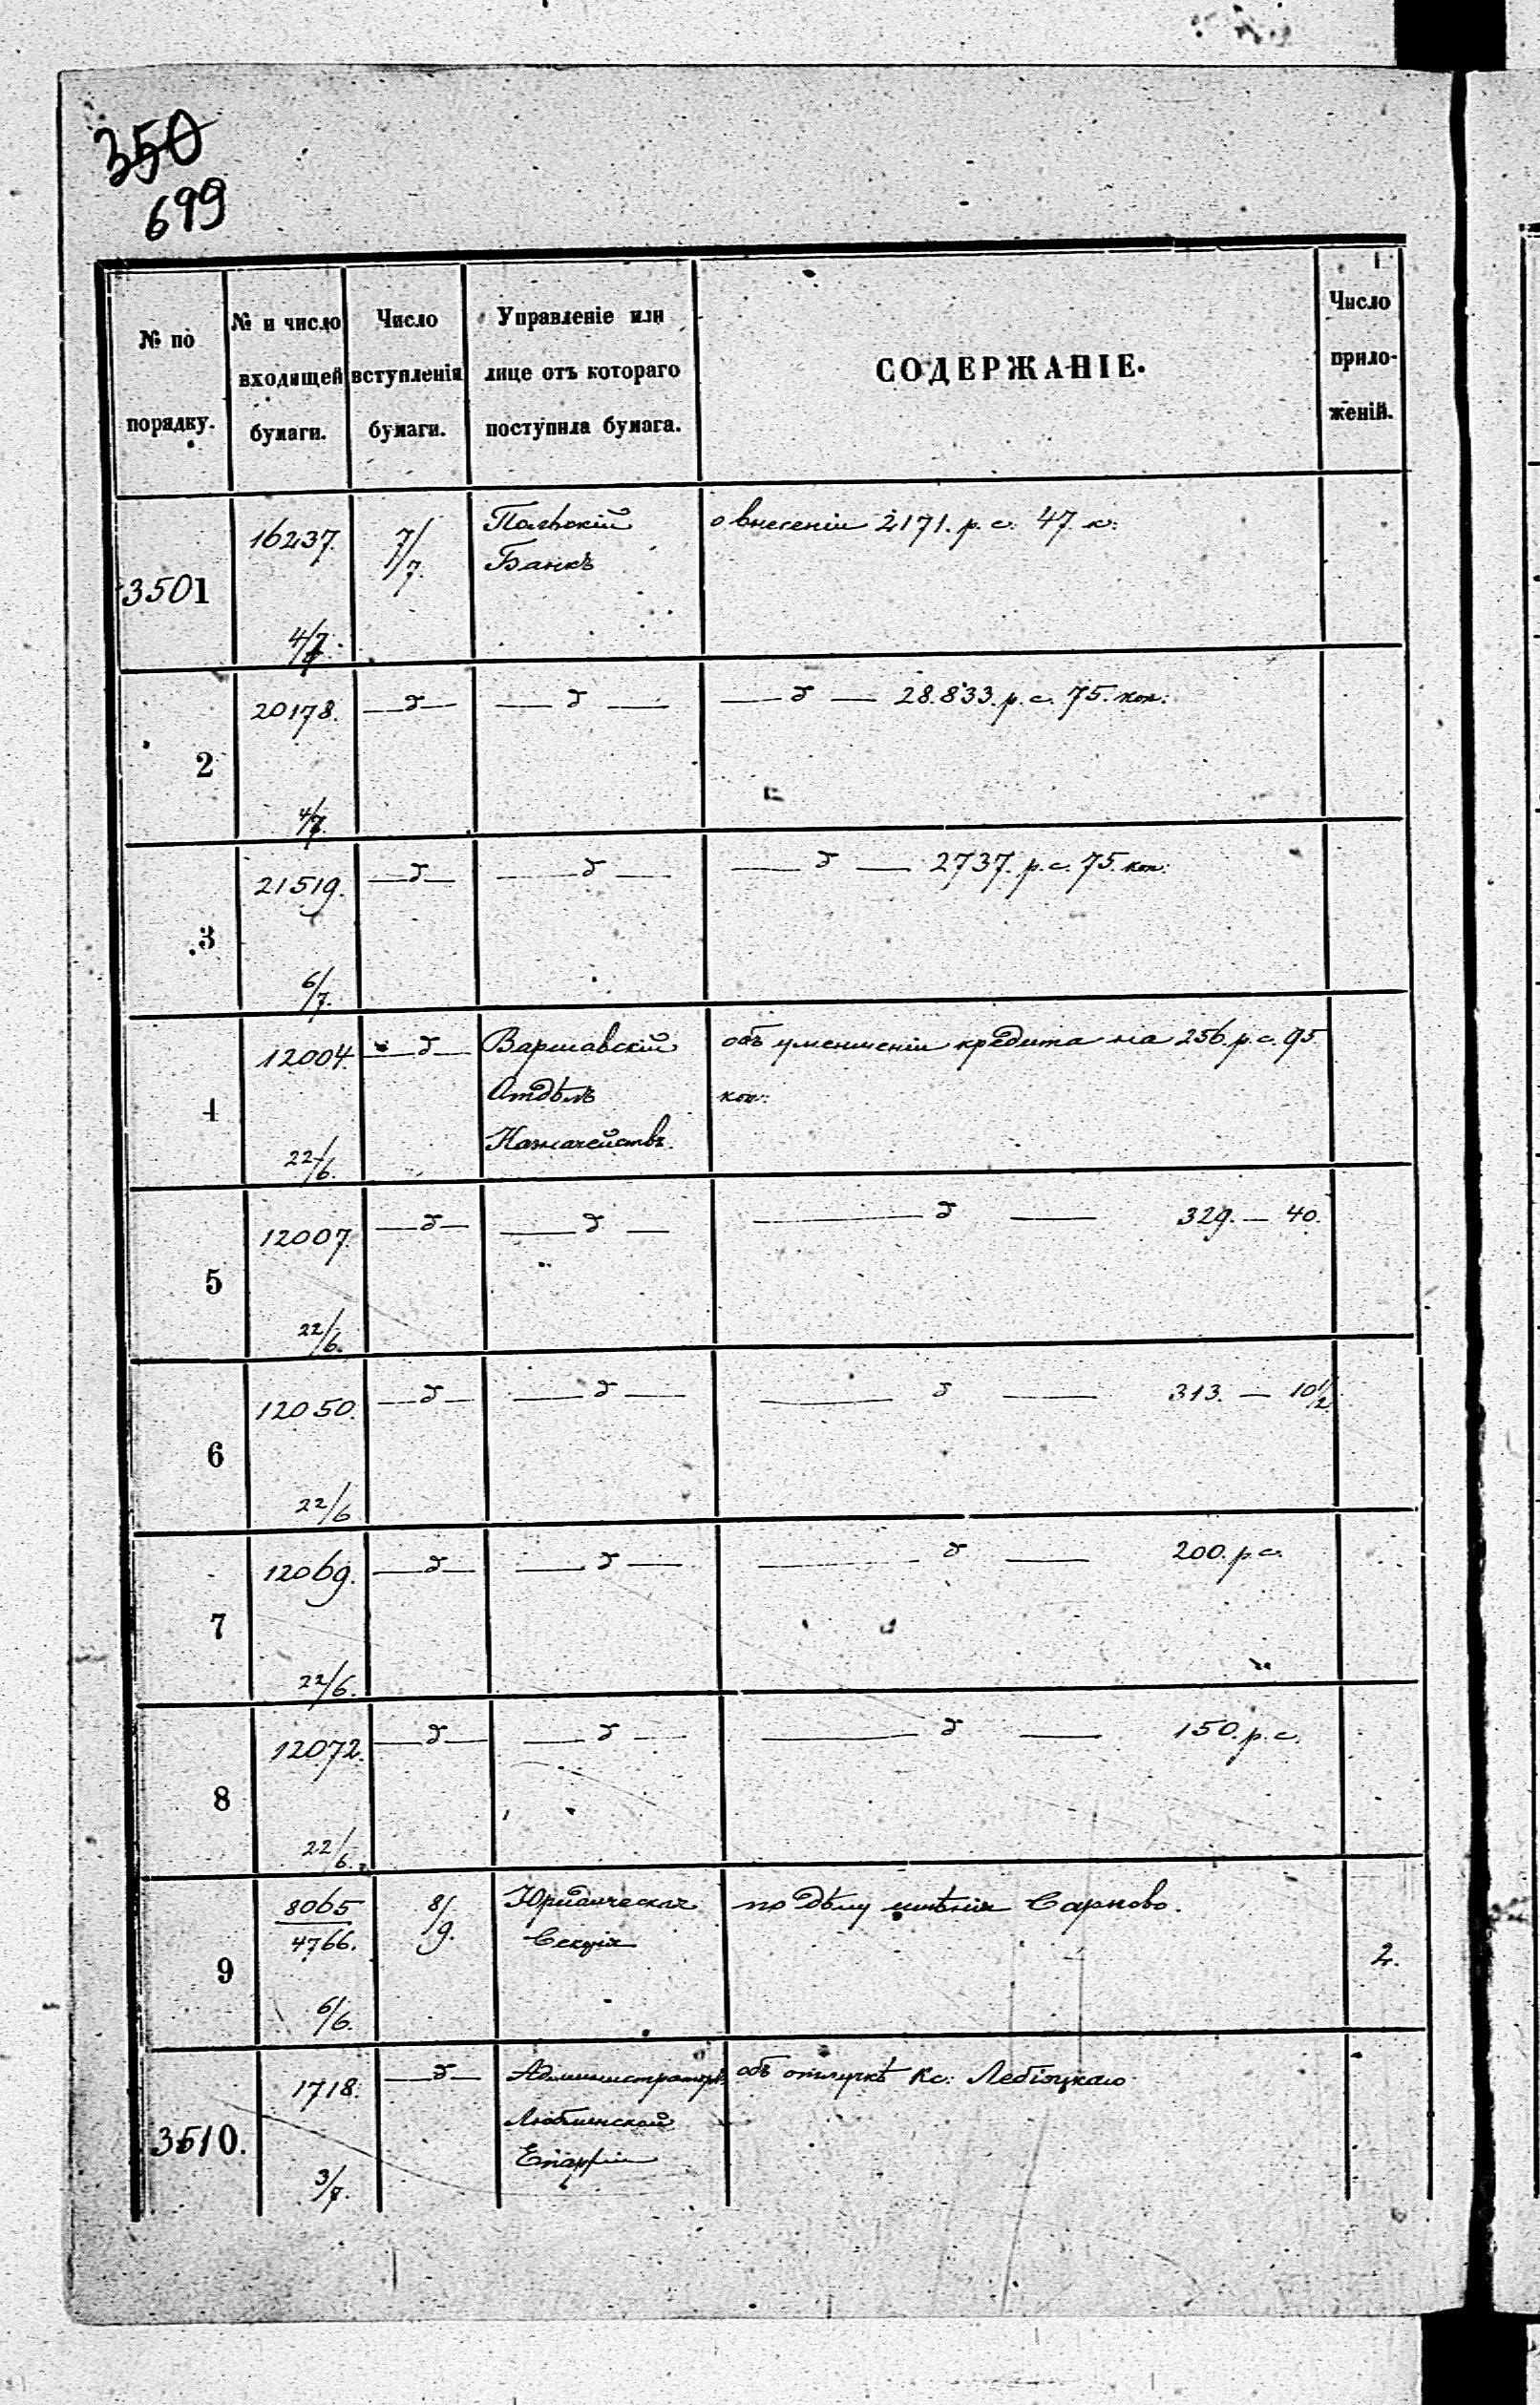 350
699
№ по порядку.
№ и число входящей бумаги.
Число вступленія бумаги.
Управленіе или лице отъ котораго поступила бумага.
СОДЕРЖАНІЕ.
Число прило-женій.
3501
16237.
4/7.
7/7.
Польскій
Банкъ
о внесеніи 2171. р. с. 47 к:
2
20178.
4/7.
— д —
— д —
— д — 28.833. р. с. 75. коп:
3
21519.
6/7.
— д —
— д —
— д — 2737. р. с. 75. коп:
4
12004.
22/6.
— д —
Варшавскій
Отдѣлъ
Казначействъ.
объ уменшеніи кредита на 256. р. с. 95
коп:
5
12007.
22/6.
— д —
— д —
— д — 329. — 40.
6
12050.
22/6
— д —
— д —
— д — 313. — 10 1/2
7
12069.
22/6.
— д —
— д —
— д — 200. р. с.
8
12072.
22/6.
— д —
— д —
— д — 150. р. с.
9
8065
4766.
6/6.
8/9.
Юридическая
Секція
по дѣлу имѣнія Сарново.
2.
3510.
1718.
3/7.
— д —
Администраторъ
Люблинской
Епархіи
объ отлучкѣ Кс: